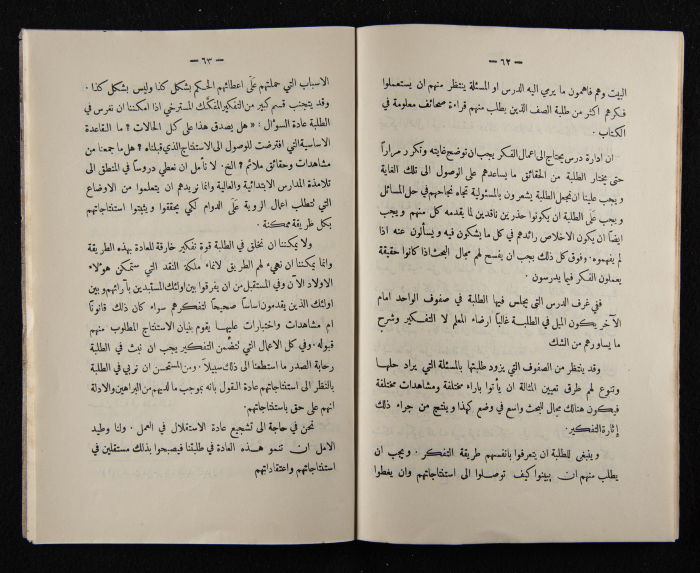 — ٦٢ —
البيت وهم فاهمون ما يرمي اليه الدرس او المسئلة ينتظر منهم ان يستعملوا
فكرهم اكثر من طلبة الصف الذين يطلب منهم قراءة صحائف معلومة في
الكتاب .
ان ادارة درس يحتاج الى اعمال الفكر يجب ان توضح غايته وتكرر مراراً
حتى يختار الطلبة من الحقائق ما يساعدهم على الوصول الى تلك الغاية
ويجب علينا ان نجعل الطلبة يشعرون بالمسئولية تجاه نجاحهم في حل المسائل
ويجب عَلَى الطلبة ان يكونوا حذرين ناقدين لما يقدمه كل منهم و يجب
ايضاً ان يكون الاخلاص رائدهم في كل ما يشكون فيه و يسألون عنه اذا
لم يفهموه . وفوق كل ذلك يجب ان يفسح لهم مجال البحث اذا كانوا حقيقة
يعملون الفكر فيما يدرسون .
ففي غرف الدرس التي يجلس فيها الطلبة في صفوف الواحد امام
الآخر يكون الميل في الطلبة غالباً ارضاء المعلم لا التفكير وشرح
ما يساورهم من الشك
وقد ينتظر من الصفوف التي يزود طلبتها بالمسئلة التي يراد حلها
وتنوع لهم طرق تعيين المثالة ان يأتوا باراء مختلفة ومشاهدات مختلفة
فيكون هنالك مجال للبحث واسع في وضع كهذا وينتج من جراء ذلك
إثارة التفكير .
و ينبغي للطلبة ان يتعرفوا بانفسهم طريقة التفكر . ويجب ان
يطلب منهم ان يبينوا كيف توصلوا الى استنتاجاتهم وان يعطوا
— ٦٣ —
الاسباب التي حملتهم عَلَى اعطائهم الحكم بشكل كذا وليس بشكل كذا .
وقد يتجنب قسم كبير من التفكير المفكك المسترخي اذا امكننا ان نغرس في
الطلبة عادة السوٴال : « هل يصدق هذا على كل الحالات ؟ ما القاعدة
الاساسية التي افترضت للوصول الى الاستنتاج الذي قبلناه ؟ هل ما جمعنا من
مشاهدات وحقائق ملائم ؟ الخ . لا نأمل ان نعطي دروساً في المنطق الى
تلامذة المدارس الابتدائية والعالية وانما نريدهم ان يتعلموا من الاوضاع
التي لتطلب اعمال الروية عَلَى الدوام لكي يحققوا ويثبتوا استنتاجاتهم
بكل طريقة ممكنة .
ولا يمكننا ان نخلق في الطلبة قوة تفكير خارقة للعادة بهذه الطريقة
وانما يمكننا ان نهيء لهم الطريق لانماء ملكة النقد التي ستمكن هوٴلاء
الاولاد الآن وفي المستقبل من ان يفرقوا بين اولئك المستبدين بآرائهم وبين
اولئك الذين يقدمون اساساً صحيحاً لتفكرهم سواء كان ذلك قانوناً
ام مشاهدات واختبارات عليها يقوم بنيان الاستنتاج المطلوب منهم
قبوله . وفي كل الاعمال التي لتضمن التفكير يجب ان نبث في الطلبة
رحابة الصدر ما استطعنا الى ذلك سبيلاً . ومن المستحسن ان نربي في الطلبة
بالنظر الى استنتاجاتهم عادة القول بانه بموجب ما لديهم من البراهين والادلة
انهم على حق باستنتاجاتهم .
نحن في حاجة الى تشجيع عادة الاستقلال في العمل . ولنا وطيد
الامل ان تنمو هذه العادة في طلبتنا فيصبحوا بذلك مستقلين في
استنتاجاتهم واعتقاداتهم